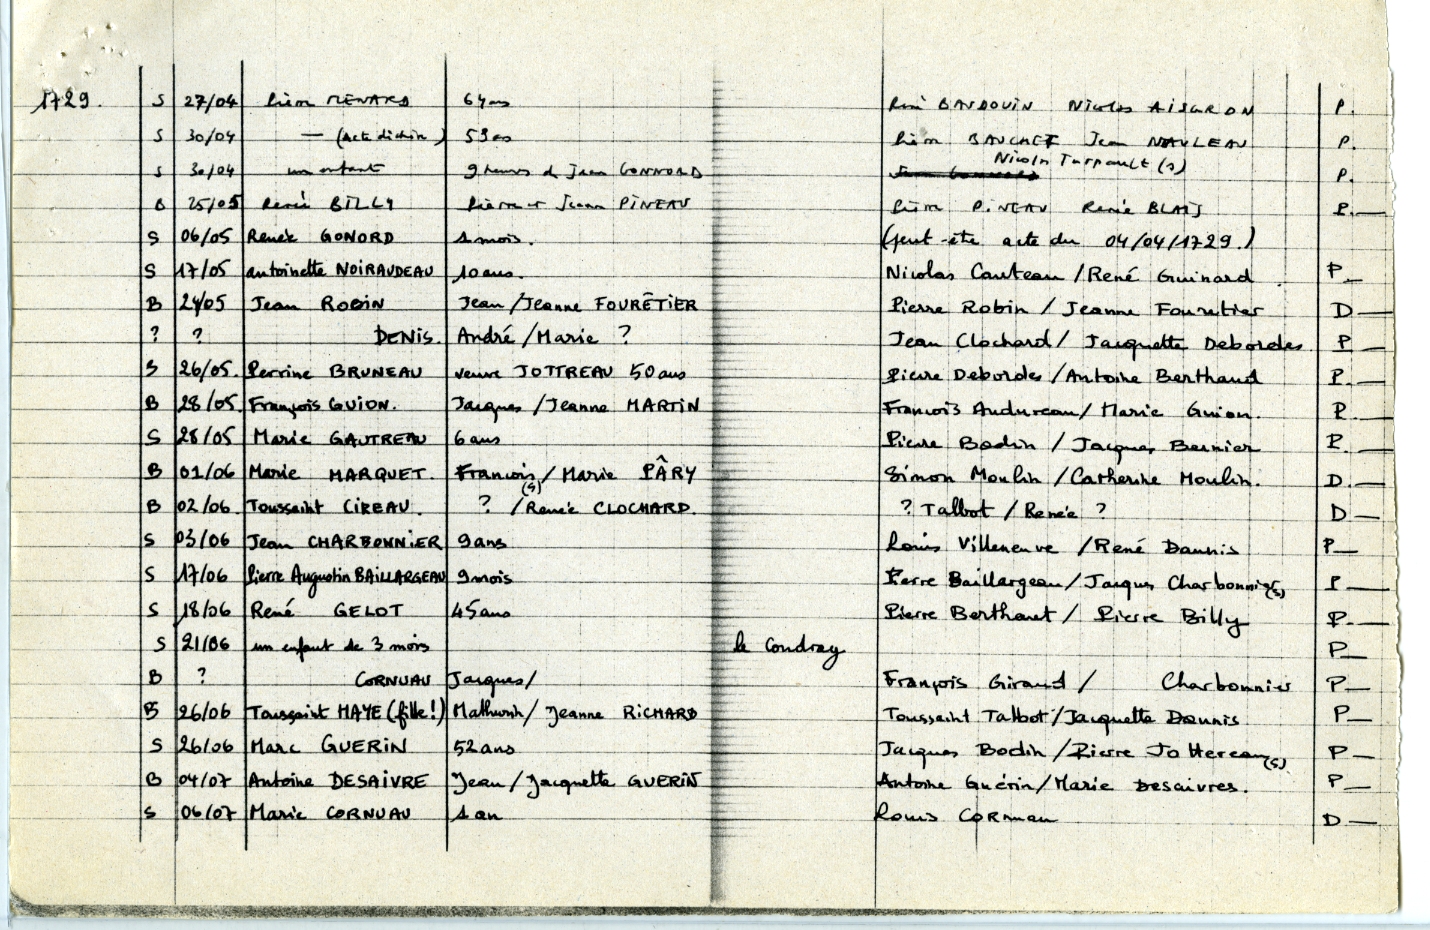 1729. S 27/04 Pierre RENARD 64 ans René BAUDOUIN Nicolas P.
S 30/04 — (acte déchiré) 53 ans Pierre BAUCHET Jean NAULEAU P.
S 30/04 un enfant 9 heures d Jean GONNORD Nicolas Turpault (s) P.
B 25/05 René BILLY Pierre et Jeanne PINEAU Pierre PINEAU Renée BLAIS P.—
S 06/05 Renée GONORD 1 mois. (peut-être acte du 04/04/1729.)
S 17/05 antoinette NOIRAUDEAU 10 ans. Nicolas Cauteau / René Guinard P—
B 24/05 Jean ROBIN Jean / Jeanne FOURÊTIER Pierre Robin / Jeanne Fouretier D—
? ? DENIS. André / Marie ? Jean Clochard / Jacquette Debordes P—
S 26/05. Perrine BRUNEAU veuve JOTTREAU 50 ans Pierre Debordes / Antoine Berthaud P.—
B 28/05. François GUION. Jacques / Jeanne MARTIN François Audureau / Marie Guion. P.—
S 28/05 Marie GAUTREAU 6 ans Pierre Bodin / Jacques Bernier P.—
B 01/06 Marie MARQUET. François / Marie PÂRY Simon Moulin / Catherine Moulin. D.—
B 02/06. Toussaint CIREAU. ? (s) / Renée CLOCHARD. ? Talbot / Renée ? D—
S 03/06 Jean CHARBONNIER 9 ans Louis Villeneuve / René Dannis P—
S 17/06 Pierre Augustin BAILLARGEAU 9 mois Pierre Baillargeau / Jacques Charbonnier(s) P—
S 18/06 René GELOT 45 ans Pierre Berthaut / Pierre Billy P.—
S 21/06 un enfant de 3 mois le Coudray P—
B ? CORNUAU Jacques / François Giraud / Charbonnier P—
B 26/06 Toussaint MAYE (fille!) Mathurin / Jeanne RICHARD Toussaint Talbot / Jacquette Dannis. P—
S 26/06 Marc GUERIN 52 ans Jacques Bodin / Pierre Jottereau(s) P—
B 04/07 Antoine DESAIVRE Jean / Jacquette GUERIN Antoine Guérin / Marie Desaivres. P—
S 06/07 Marie CORNUAU 1 an Louis Cornuau D—